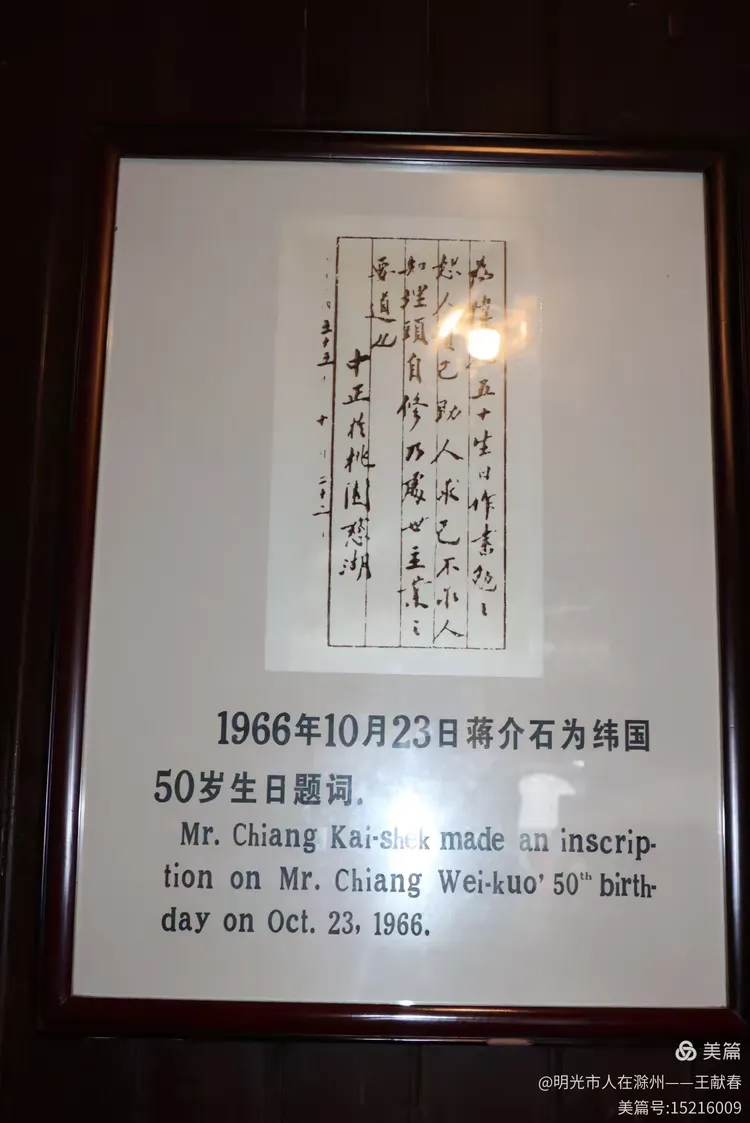 為緯五十生日作書勉之
恕人己助人求己不求人
埋頭自修乃處世立業之
要道也
中正於桃園慈湖
五十五、十、二十三、
1966年10月23日蒋介石为纬国
50岁生日题词.
Mr. Chiang Kai-shek made an inscrip-
tion on Mr. Chiang Wei-kuo' 50th birth-
day on Oct. 23, 1966.
美篇
@明光市人在滁州——王献春
美篇号:15216009